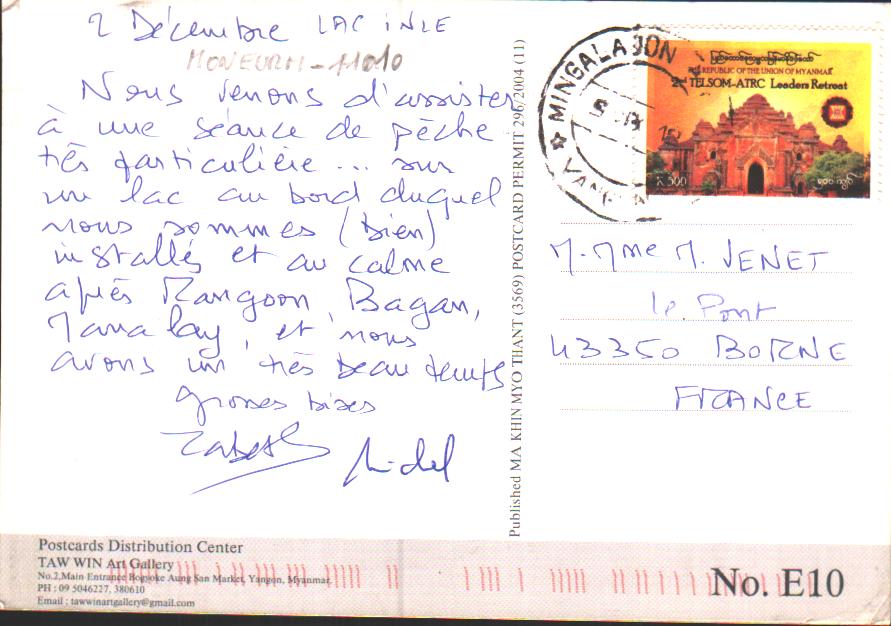 2 Décembre LAC iNLE
Nous venons d'assister
à une séance de pêche
très particulière... sur
un lac au bord duquel
nous sommes (bien)
installés et au calme
après Rangoon, Bagan,
Manalay, et nous
avons un très beau temps
grosses bises
Michel
Published MA KHIN MYO THANT (3569) POSTCARD PERMIT 296/2004 (11)
MINGALADON
REPUBLIC OF THE UNION OF MYANMAR
TELSOM-ATRC Leaders Retreat
K 500
M. Mme M. VENET
le Pont
43350 BORNE
FRANCE
Postcards Distribution Center
TAW WIN Art Gallery
No.2,Main Entrance Bogyoke Aung San Market, Yangon, Myanmar.
PH : 09 5046227, 380610
Email : tawwinartgallery@gmail.com
No. E10